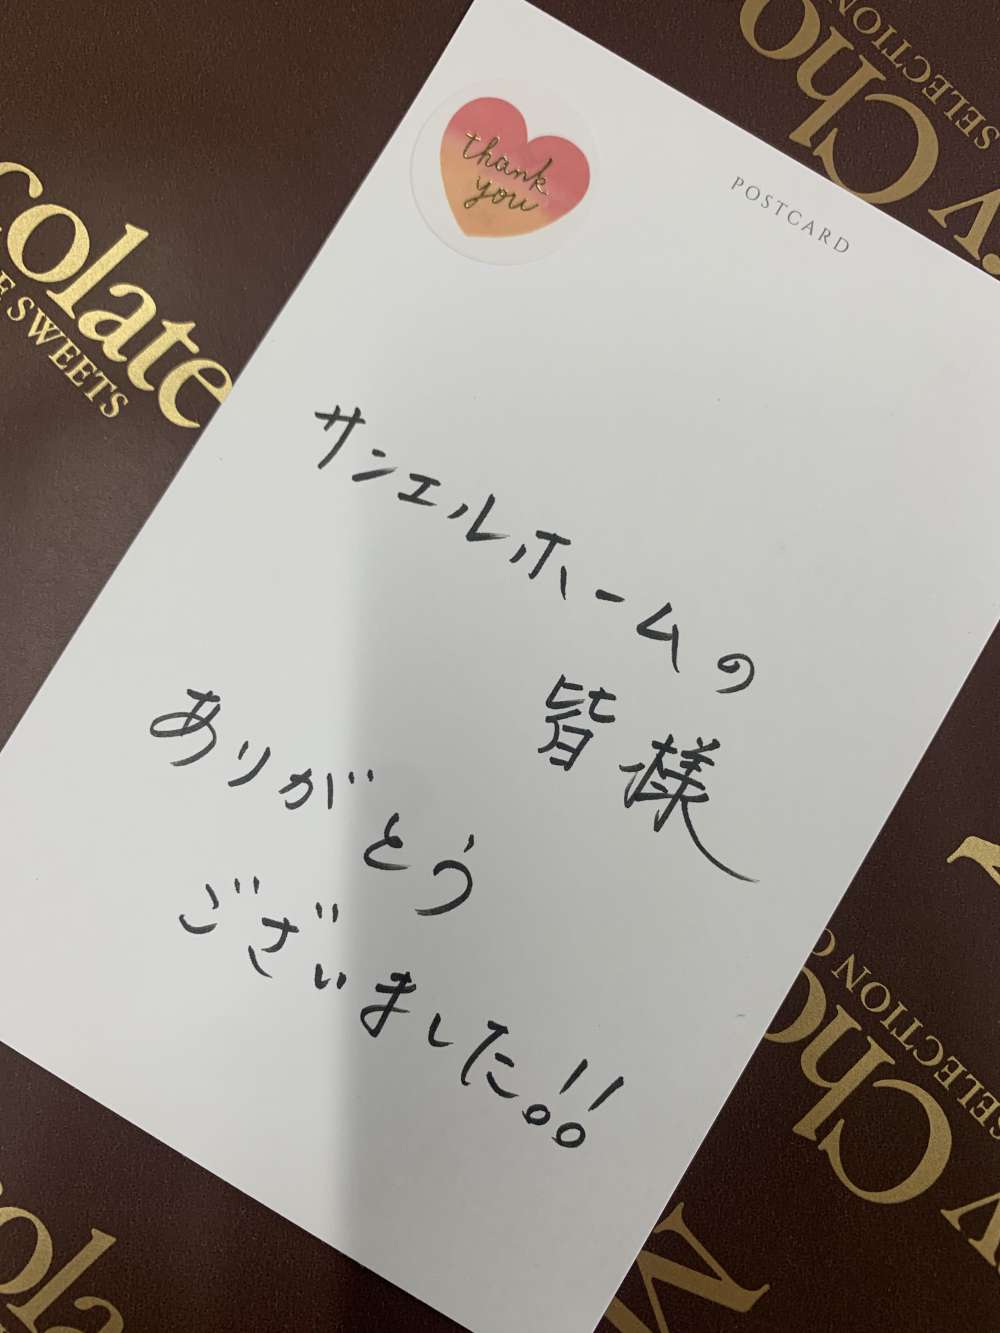 thank
you
POSTCARD
サンエルホームの
皆様
ありがとう
ございました!!
colate
E SWEETS
Cho
SELECTION
Cho
SELECTION O
colate